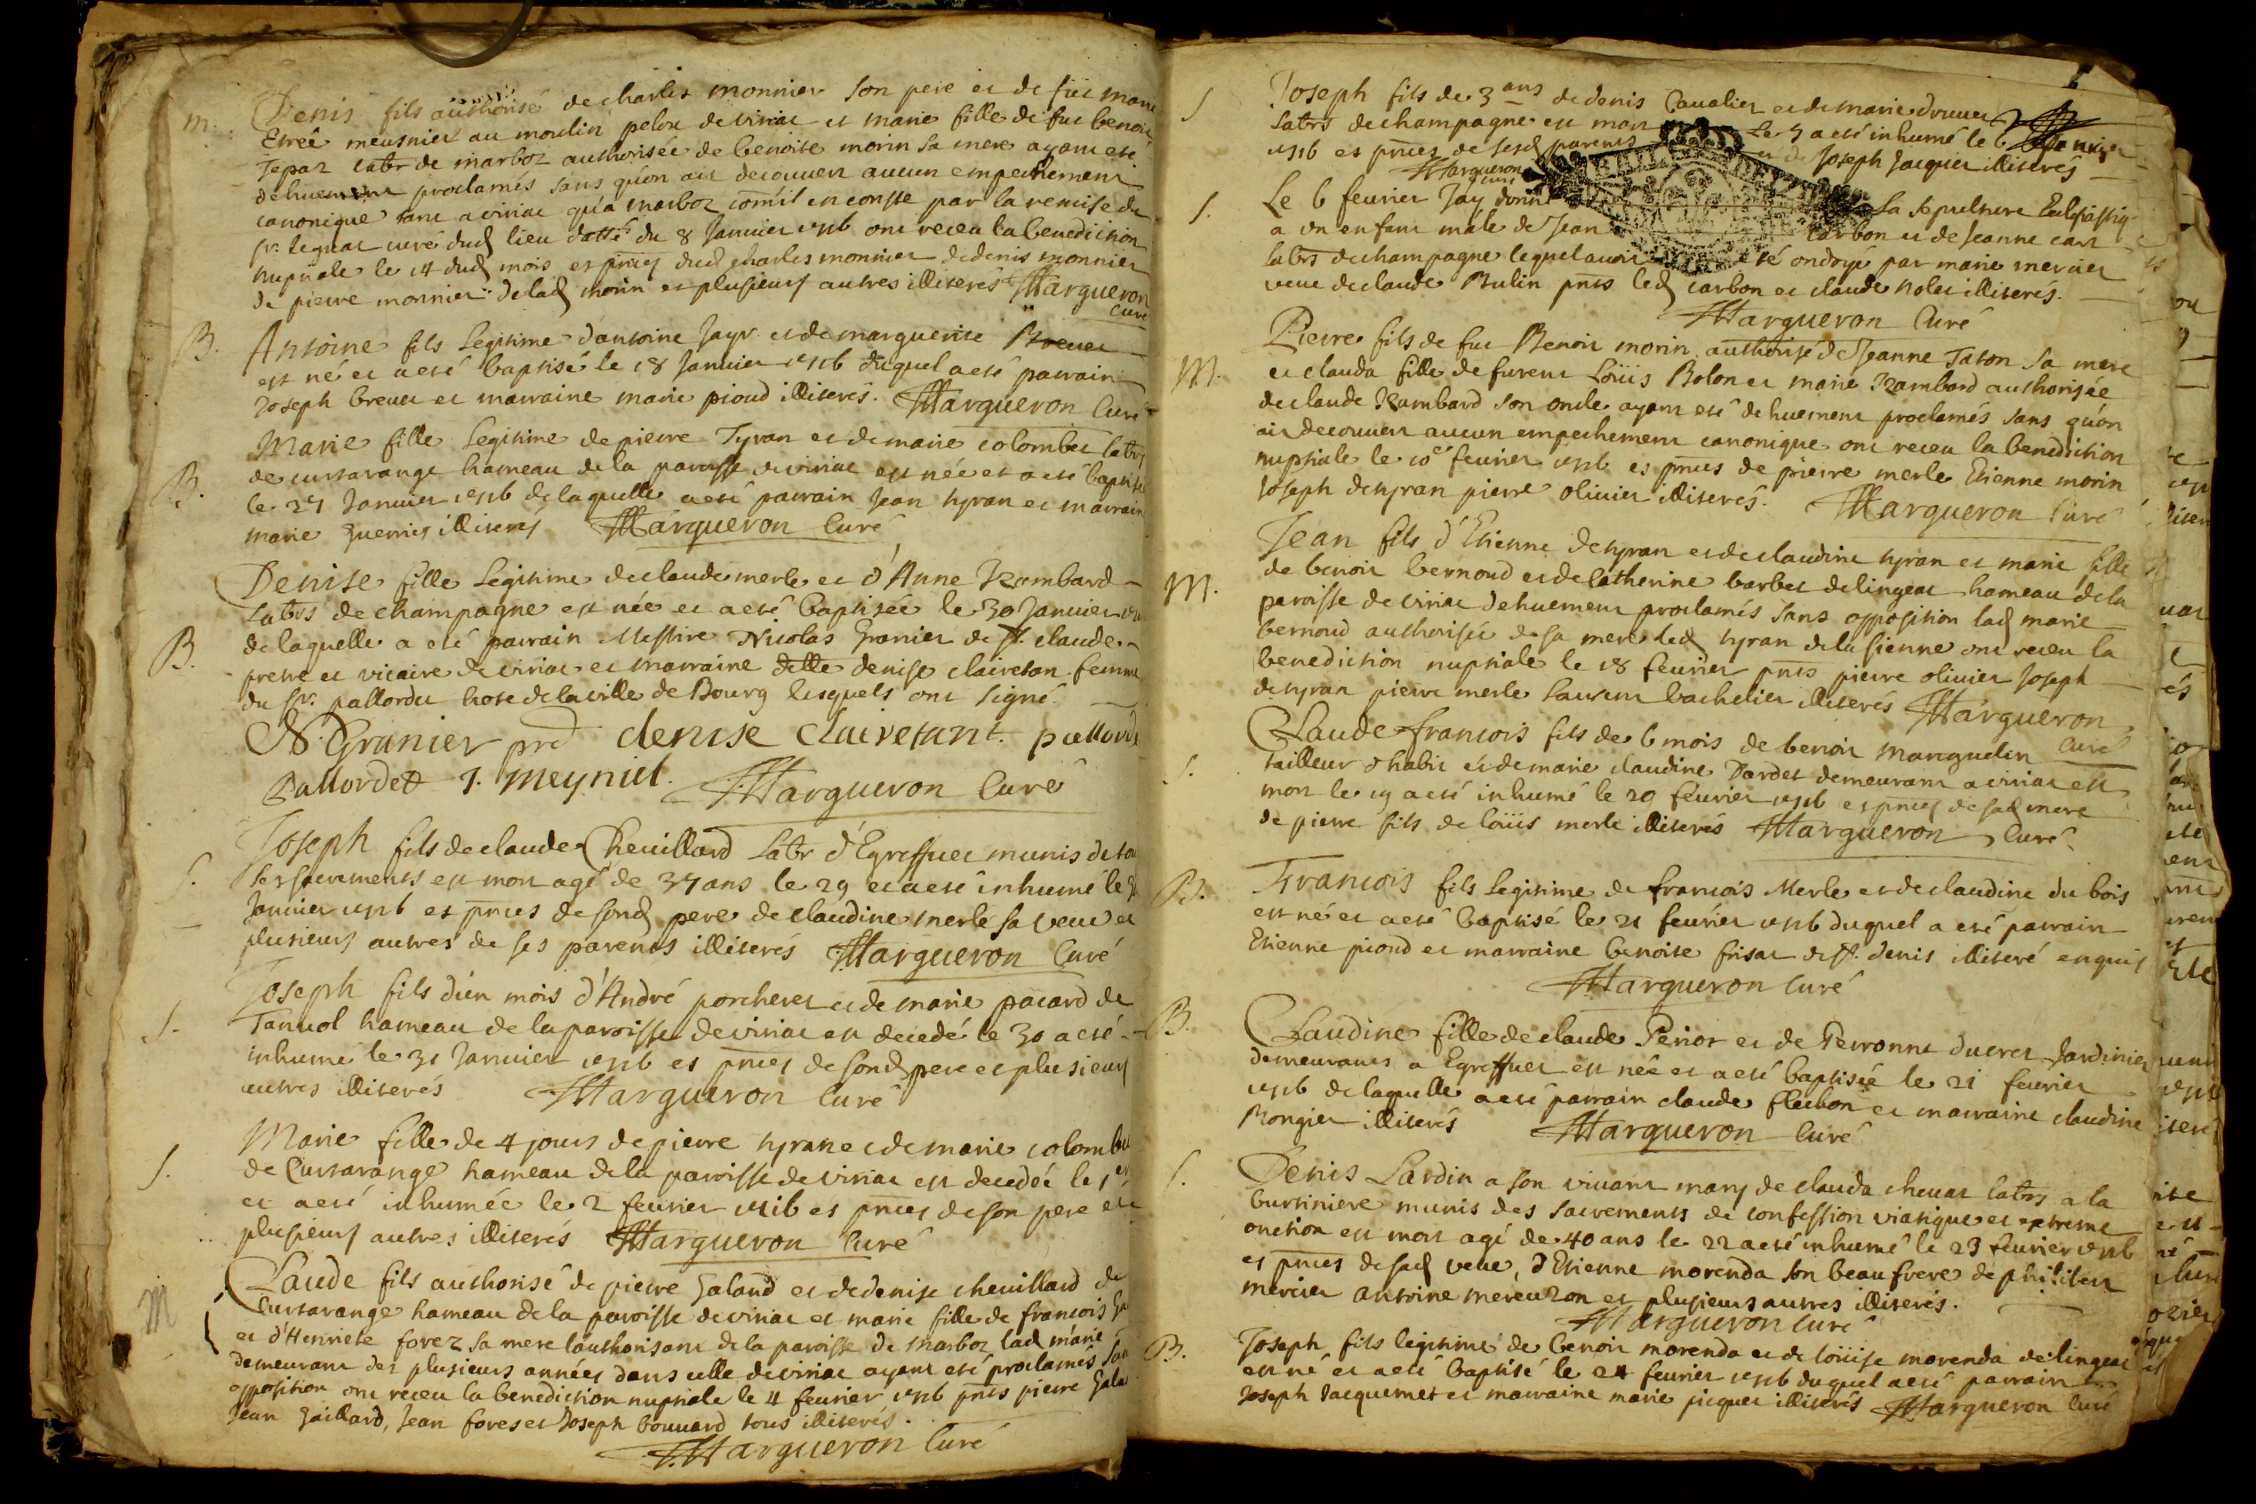 m. Denis fils authorisé de charles monnier son pere et de fue marie
Etreé meusnier au moulin pelou de viriac et marie fille de feu benoit
Tepaz labr de marboz authorisée de benoite morin sa mere ayant eté
dehuement proclamés sans qu'on ait decouvert aucun empechement
canonique tant a viriac qu'a marboz com̄'il en conste par la remise du
sr. leguat curé dud lieu datté du 8 Janvier 1716 ont receu la benediction
nuptiale le 14 dud mois es pn̄ces dud charles monnier de denis monnier
de pierre monnier de lad morin et plusieurs autres illiterés Margueron
curé
B. Antoine fils legitime d'antoine Jayr et de marguerite Brevet
est né et a eté baptisé le 18 Janvier 1716 duquel a eté parrain
Joseph brevet et marraine marie pioud illiterés. Margueron Curé
Marie fille legitime de pierre Tyran et de marie colombet labrs
B. de curtarange hameau de la paroisse de viriac est née et a eté baptisée
le 27 Janvier 1716 de laquelle a eté parrain Jean tyran et marraine
marie guerrin illiterés Margueron Curé
Denise fille legitime de claude merle et d'Anne Rambard
labrs de champagne est née et a eté baptisée le 30 Janvier
B. de laquelle a eté parrain Messire Nicolas Granier de st. claude
pretre et vicaire de viriac et marraine delle denise clairetan femme
du sr. pallordet hote de la ville de Bourg lesquels ont signé.
N. Granier denise Clairetant pallorde
Pallordet J. Meyniel. Margueron Curé
Joseph fils de claude Chevillard labr d'Egreffuel munis de tous
S. les sacrements est mort agé de 37 ans le 29 et a eté inhumé le
Janvier 1716 es pn̄ces de sond pere de claudine merle sa veuve et
plusieurs autres de ses parents illiterés Margueron Curé
Joseph fils d'un mois d'André porcheret et de marie pacard de
S. Tanvol hameau de la paroisse de viriac est decedé le 30 a eté
inhumé le 31 Janvier 1716 es pn̄ces de sond pere et plusieurs
autres illiterés Margueron Curé
Marie fille de 4 jours de pierre tyran et de marie colombet
S. de Curtarange hameau de la paroisse de viriac est decedée le 1er
et a eté inhumée le 2 fevrier 1716 es pn̄ces de son pere et
plusieurs autres illiterés Margueron Curé
Claude fils authorisé de pierre Galand et de denise chevillard de
M Curtarange hameau de la paroisse de viriac et marie fille de francois
et d'Henriete forez sa mere l'authorisant de la paroisse de Marboz lad marie
demeurant des plusieurs années dans celle de viriac ayant eté proclamés sans
opposition ont receu la benediction nuptiale le 4 fevrier 1716 pn̄ts pierre
Jean Gaillard, Jean forest et Joseph bouvard tous illiterés.
Margueron Curé
S Joseph fils de 3 ans de denis Cavalier et de marie drevet
labrs de champagne est mort le 5 a eté inhumé le 6
1716 es pn̄ces de sesd parents et de Joseph Jacquet illiterés
Margueron curé
S. Le 6 fevrier Jay donné la sepulture Eclesiastiq
a un enfant mâle de Jean carbon et de Jeanne carr
labrs de champagne lequel avoit eté ondoyé par marie mercier
veuve de claude Bulin pn̄ts led carbon et claude nolet illiterés.
Margueron Curé
Pierre fils de feu Benoit morin authorisé de Jeanne Taton sa mere
M. et clauda fille de furent Loüis Bolon et marie Rambard authorisée
de claude Rambard son oncle ayant eté dehuement proclamés sans qu'on
ait decouvert aucun empechement canonique ont receu la benediction
nuptiale le 10e fevrier 1716 es pn̄ces de pierre merle Etienne morin
Joseph detyran pierre olivier illiterés. Margueron Curé
Jean fils d'Etienne detyran et de claudine tyran et marie fille
M. de benoit bernoud et de Catherine barbet de lingeat hameau de la
paroisse de viriac dehuement proclamés sans opposition lad marie
bernoud authorisée de sa mere led tyran de la sienne ont receu la
benediction nuptiale le 18 fevrier pn̄ts pierre olivier Joseph
detyran pierre merle laurent bachelier illiterés Margueron
Curé
Claude francois fils de 6 mois de benoit manguelin
S. tailleur d'habit et de marie claudine Dardet demeurant a viriac est
mort le 19 a eté inhumé le 20 fevrier 1716 es pn̄ces de sad mere
de pierre fils de loüis merle illiterés Margueron Curé
B. Francois fils legitime de francois Merle et de claudine du bois
est né et a eté baptisé le 21 fevrier 1716 duquel a eté parrain
Etienne pioud et marraine benoite frisat de st. denis illiteré enquis
Margueron Curé
B. Claudine fille de claude Perior et de Perronne ducret Jardinier
demeurants a Egreffuel est née et a eté baptisée le 21 fevrier
1716 de laquelle a eté parrain claude flechon et marraine claudine
Rongier illiterés Margueron Curé
S. Denis Lardin a son vivant mary de clauda chenat labrs a la
burtiniere munis des sacrements de confession viatique et extreme
onction est mort agé de 40 ans le 22 a eté inhumé le 23 fevrier 1716
es pn̄ces de sad veuve, d'Etienne morenda son beau frere de philibert
mercier antoine mercuzon et plusieurs autres illiterés.
Margueron Curé
B. Joseph fils legitime de benoit morenda et de loüise morenda de lingeat
est né et a eté baptisé le 24 fevrier 1716 duquel a eté parrain
Joseph Jacquemet et marraine marie picquet illiterés Margueron Curé